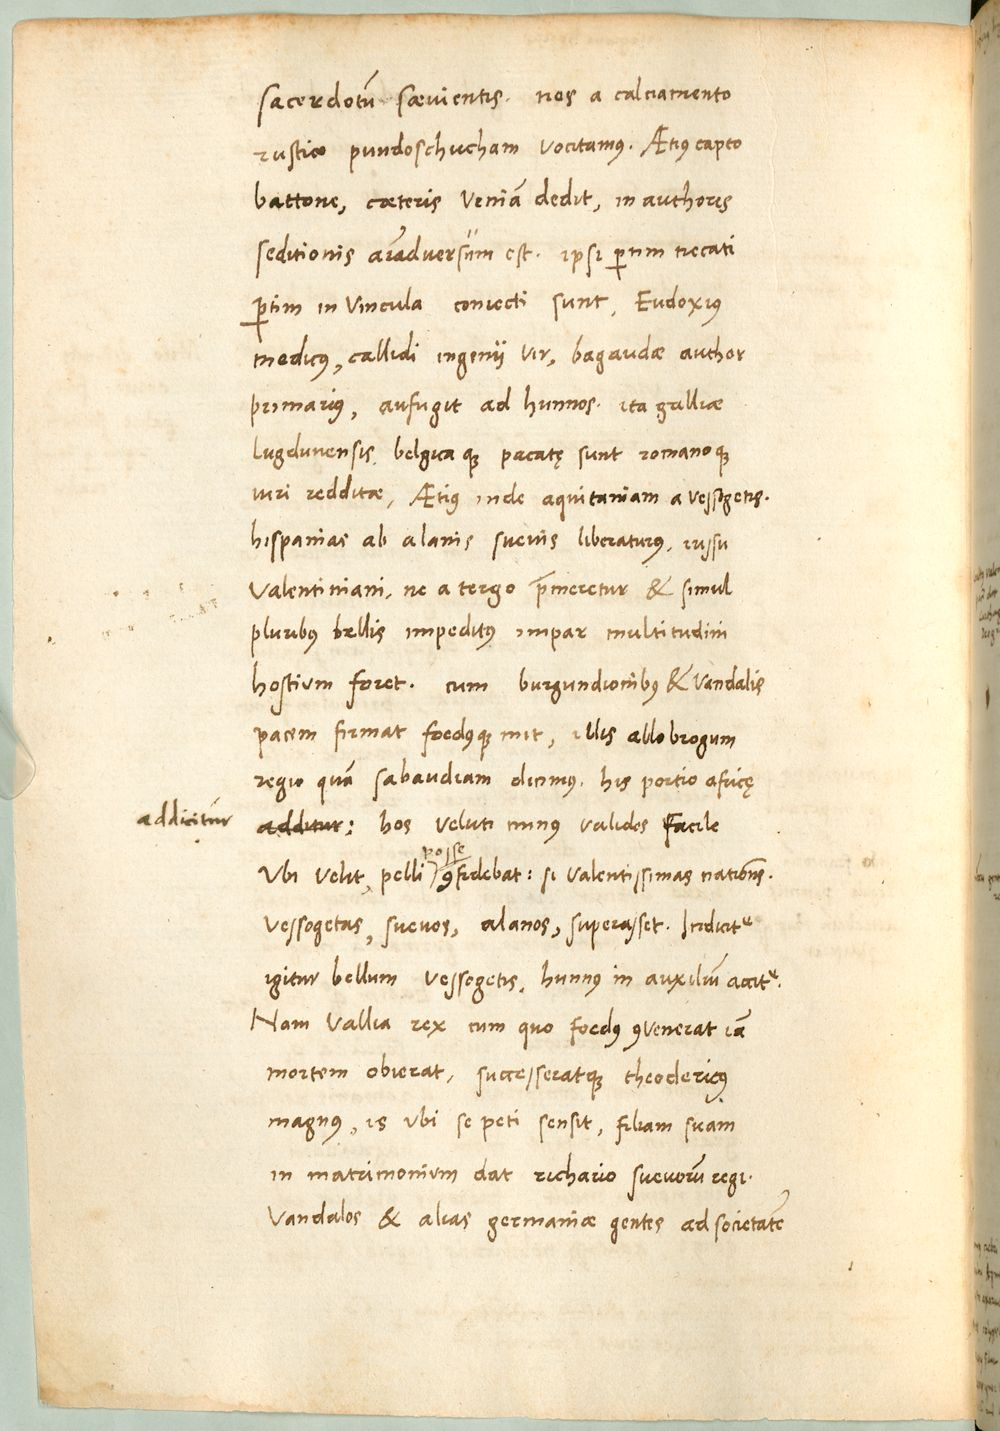 sacerdotū sævientis. nos a calciamento
rustico pundoschucham vocitamus. Ætius capto
battone, cæteris veniā dedit, in authoris
seditionis aīadversum est. ipsi ptim necati
ptim in vincula coniecti sunt, Eudoxius
medicus, callidi ingenii vir, bagaudæ author
primarius, aufugit ad hunnos. ita galliæ
lugdunensis, belgica que pacatę sunt romanoque
iuri redditæ, Ætius inde aquitaniam a vessogetis.
hispanias ab alanis suevis liberaturus, iussu
Valentiniani, ne a tergo p̄meretur & simul
pluribus bellis impeditus impar multitudini
hostium foret. cum burgundionibus & Vandalis
pacem firmat foedusque init, illis allobrogum
regio quā sabaudiam dicimus. his portio africę
addicitur additur: hos veluti minus validos facile
posse
Ubi velit, pelli 9fidebat: si valentissimas nationes.
vessogetas, suevos, alanos, superasset. Indicitur
igitur bellum vessegetis, hunnus in auxiliū accitur.
Nam Vallia rex cum quo foedus 9venerat iā
mortem obierat, successeratque theodericus
magnus, is ubi se peti sensit, filiam suam
in matrimonium dat richario suevorū regi.
Vandalos & alias germaniæ gentes ad societatē